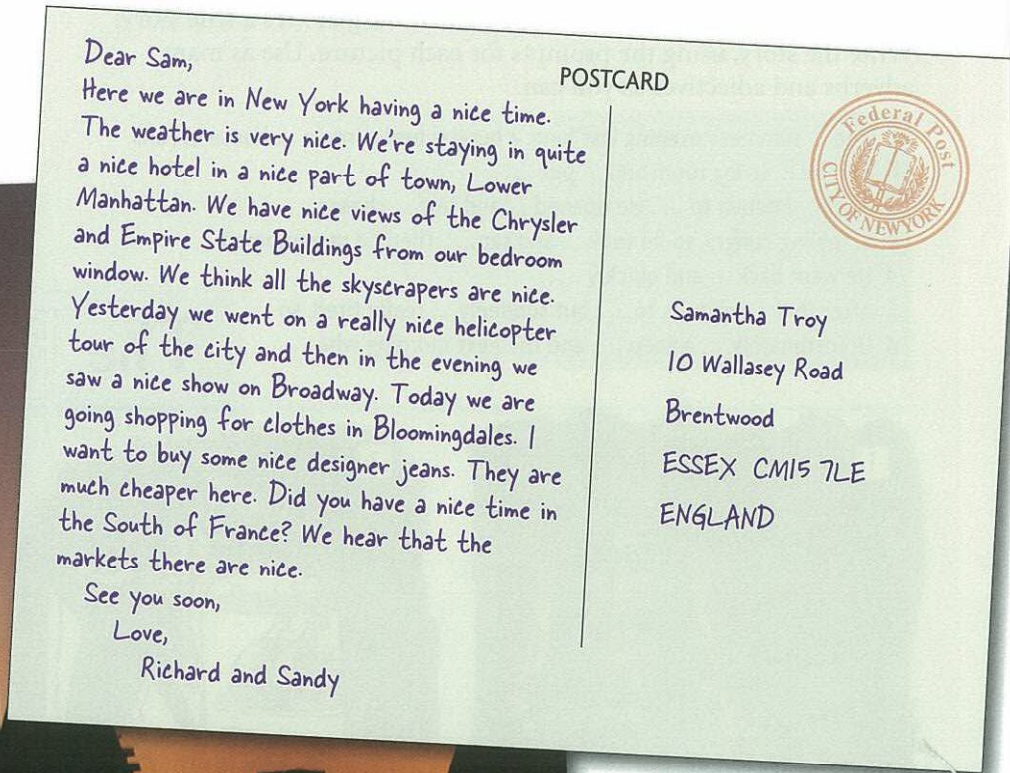 Dear Sam,
Here we are in New York having a nice time.
The weather is very nice. We're staying in quite
a nice hotel in a nice part of town, Lower
Manhattan. We have nice views of the Chrysler
and Empire State Buildings from our bedroom
window. We think all the skyscrapers are nice.
Yesterday we went on a really nice helicopter
tour of the city and then in the evening we
saw a nice show on Broadway. Today we are
going shopping for clothes in Bloomingdales. I
want to buy some nice designer jeans. They are
much cheaper here. Did you have a nice time in
the South of France? We hear that the
markets there are nice.
See you soon,
Love,
Richard and Sandy
POSTCARD
Federal Post
CITY OF NEW YORK
Samantha Troy
10 Wallasey Road
Brentwood
ESSEX CM15 7LE
ENGLAND